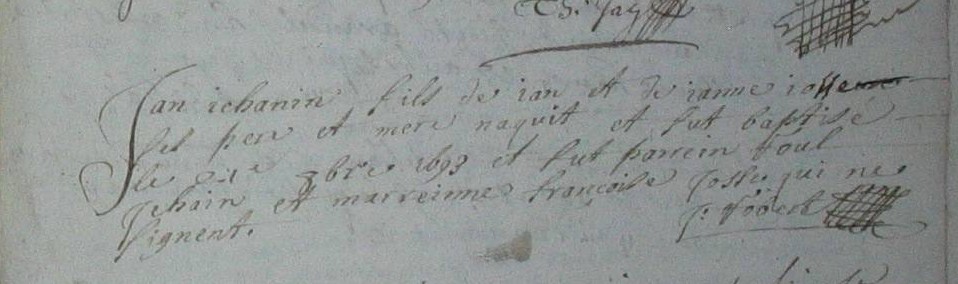 Jan iehanin fils de ian et de ianne iosse
ses pere et mere naquit et fut baptisé
le 21e bre 1693 et fut parrein
Jehain et marreinne françoise Josse qui ne
signent.